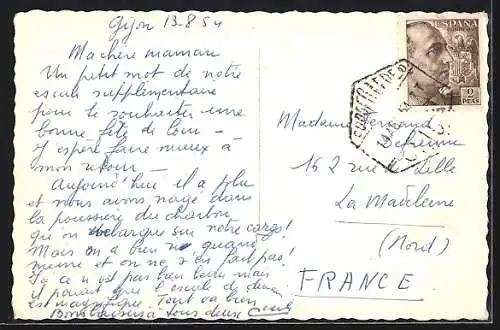 Gijon 13-8 54
Ma chère maman
Un petit mot de notre
escale supplémentaire
pour te souhaiter une
bonne fête de loin -
J'espère faire mieux à
mon retour -
Aujourd'hui il a plu
et nous avons nagé dans
la poussière du charbon
qu'on embarque sur notre cargo!
Mais on a bien quand
même et on ne s'en fait pas!
Ici ce n'est pas bien beau mais
il parait que l'escale de demain
est magnifique. Tout va bien
Bons baisers à tous deux
ESPAÑA
CORREOS
PTAS
CORREO AEREO
Madame Fernand
162 rue de Lille
La Madeleine
(Nord)
FRANCE